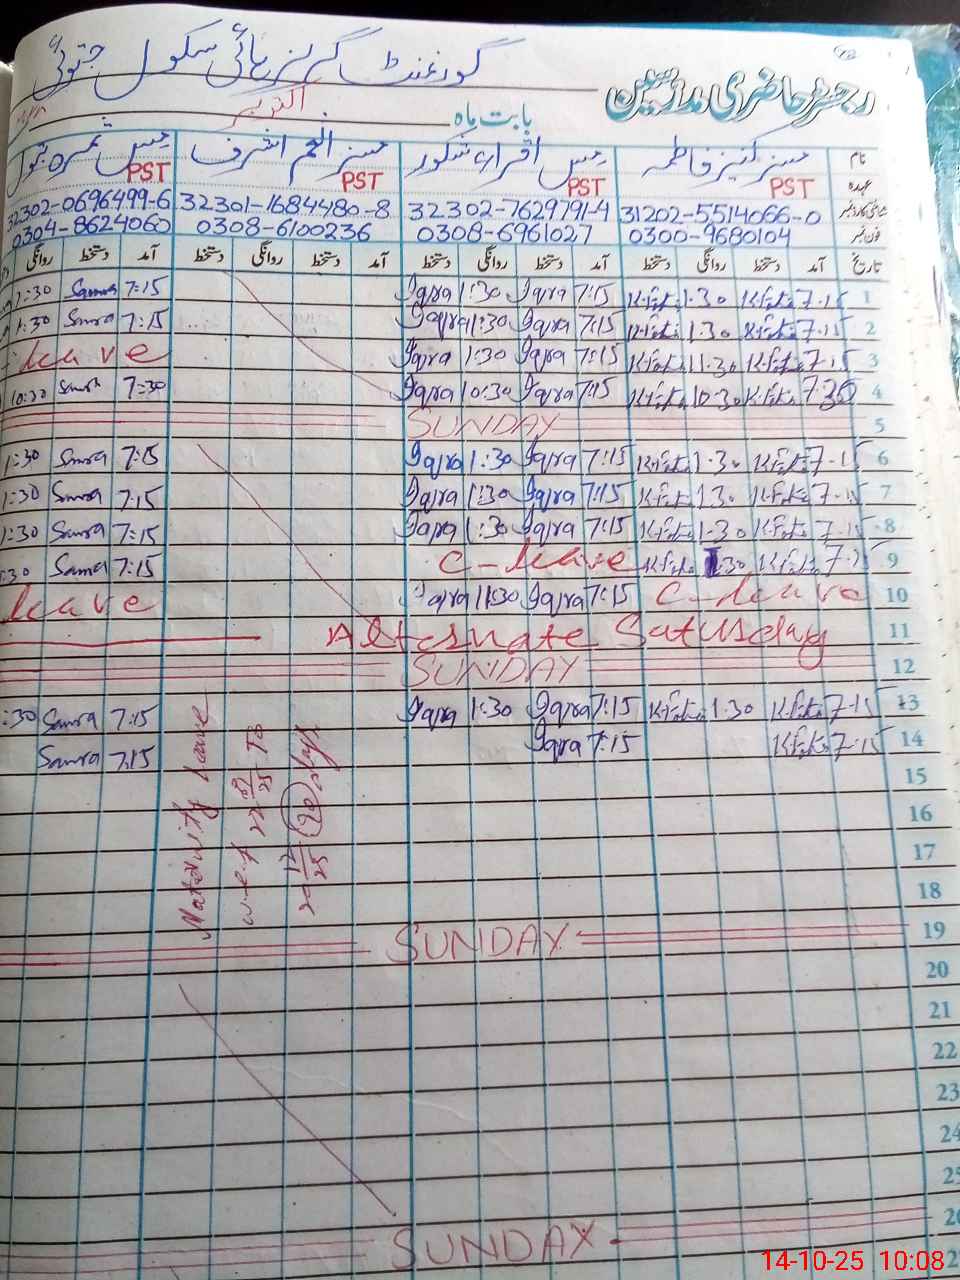 گورنمنٹ گرلز ہائی سکول جتوئی
رجسٹر حاضری مدرسین
بابت ماہ اکتوبر
نام مسز کنیز فاطمہ مس اقراء شکور مسز انعم اشرف مس ثمرہ بتول
عہدہ PST PST PST PST
شناختی کارڈ نمبر 31202-5514066-0 32302-7629791-4 32301-1684480-8 32302-0696499-6
فون نمبر 0300-9680104 0308-6961027 0308-6100236 0304-8624060
تاریخ آمد دستخط روانگی دستخط آمد دستخط روانگی دستخط آمد دستخط روانگی دستخط آمد دستخط روانگی
1 7-15 K.Fat. 1.30 K.Fat. 7:15 Iqra 1:30 Iqra 7:15 Samra 1:30
2 7-15 K.Fat. 1.30 K.Fat. 7:15 Iqra 1:30 Iqra 7:15 Samra 1:30
3 7-15 K.Fat. 1.30 K.Fat. 7:15 Iqra 1:30 Iqra Leave
4 7.30 K.Fat. 10.30 K.Fat. 7:15 Iqra 10:30 Iqra 7:30 Samra 10:30
5 SUNDAY
6 7-15 K.Fat. 1.30 K.Fat. 7:15 Iqra 1:30 Iqra 7:15 Samra 1:30
7 7-15 K.Fat. 1.30 K.Fat. 7:15 Iqra 1:30 Iqra 7:15 Samra 1:30
8 7-15 K.Fat. 1.30 K.Fat. 7:15 Iqra 1:30 Iqra 7:15 Samra 1:30
9 7-15 K.Fat. 1.30 K.Fat. C-Leave 7:15 Samra :30
10 C-Leave 7:15 Iqra 11:30 Iqra Leave
11 Alternate Saturday
12 SUNDAY
13 7-15 K.Fat. 1.30 K.Fat. 7:15 Iqra 1:30 Iqra 7:15 Samra :30
14 7-15 K.Fat. 7:15 Iqra 7:15 Samra
Maternity Leave
w.e.f 22 To
20 12/25 (90) days
15
16
17
18
19 SUNDAY
20
21
22
23
24
25
26 SUNDAY
14-10-25 10:08